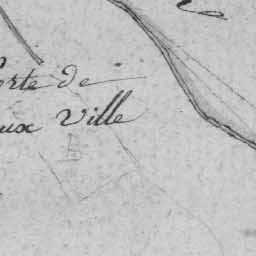 orte de
ux Ville